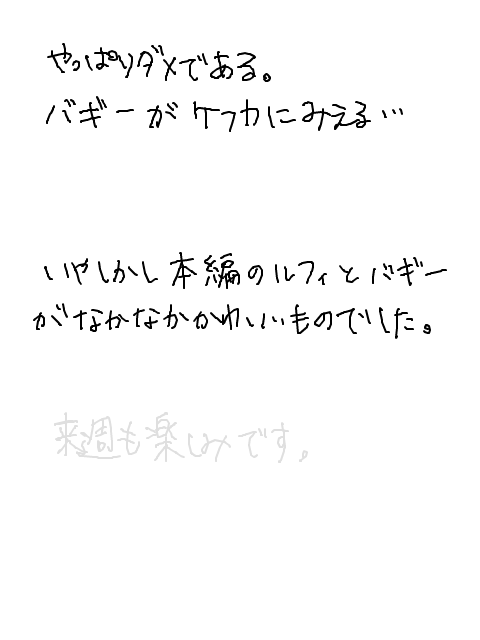 やっぱりダメである。
バギーがケフカにみえる…
いやしかし本編のルフィとバギー
がなかなかかわいいものでした。
来週も楽しみです。